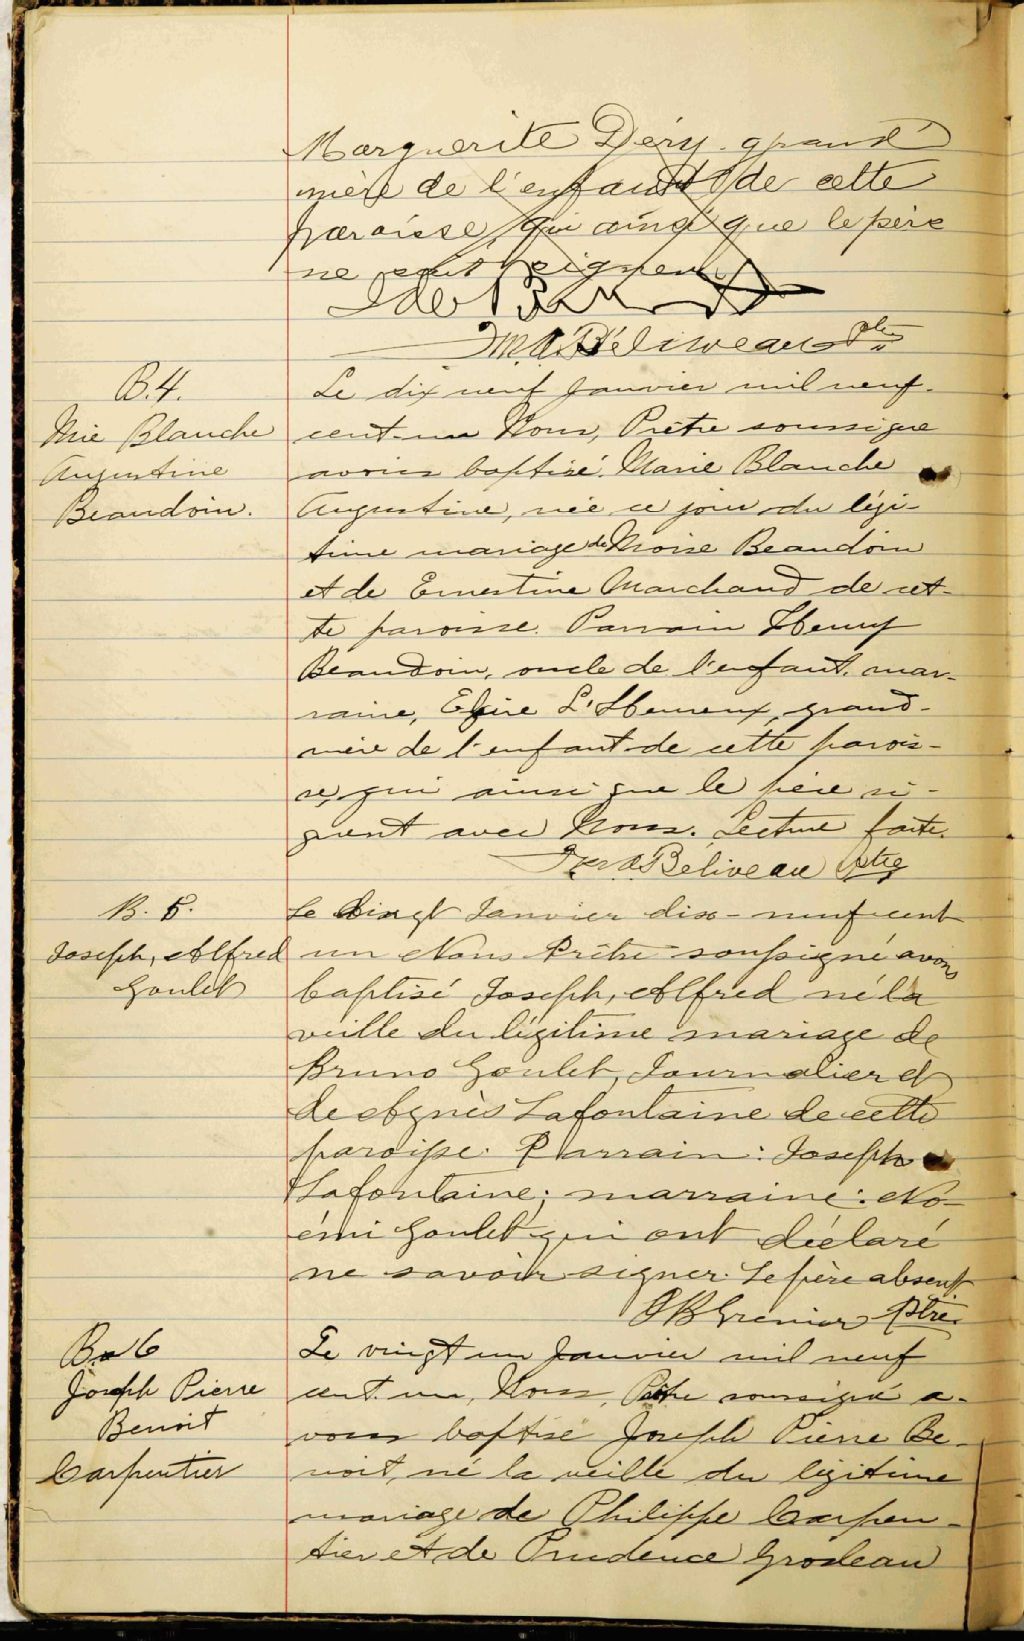 Marguerite Déry grand
mère de l'enfant de cette
paroisse, qui ainsi que le père
ne sait signer.
Béliveau Ptre
B.4.
Mie Blanche
Augustine
Beaudoin.
Le dix neuf Janvier mil neuf-
cent-un Nous, Prêtre soussigné
avons baptisé Marie Blanche
Augustine, née ce jour du légi-
time mariage de Moïse Beaudoin
et de Ernestine Marchand de cet-
te paroisse. Parrain Henry
Beaudoin, oncle de l'enfant, mar-
raine, L'Heureux, grand-
mère de l'enfant de cette parois-
se, qui ainsi que le père si-
gnent avec Nous. Lecture faite.
Béliveau Ptre
B. 5.
Joseph, Alfred
Goulet
Le vingt Janvier dix-neuf cent
un Nous Prêtre soussigné avons
baptisé Joseph, Alfred né la
veille du légitime mariage de
Bruno Goulet, Journalier et
de Agnès Lafontaine de cette
paroisse. Parrain: Joseph
Lafontaine; marraine: No-
émi Goulet qui ont déclaré
ne savoir signer. Le père absent
Grenier Ptre.
B. 6
Joseph Pierre
Benoit
Carpentier
Le vingt un Janvier mil neuf
cent-un, Nous, Prêtre soussigné a-
vons baptisé Joseph Pierre Be-
noit, né la veille du légitime
mariage de Philippe Carpen-
tier et de Prudence Grosleau